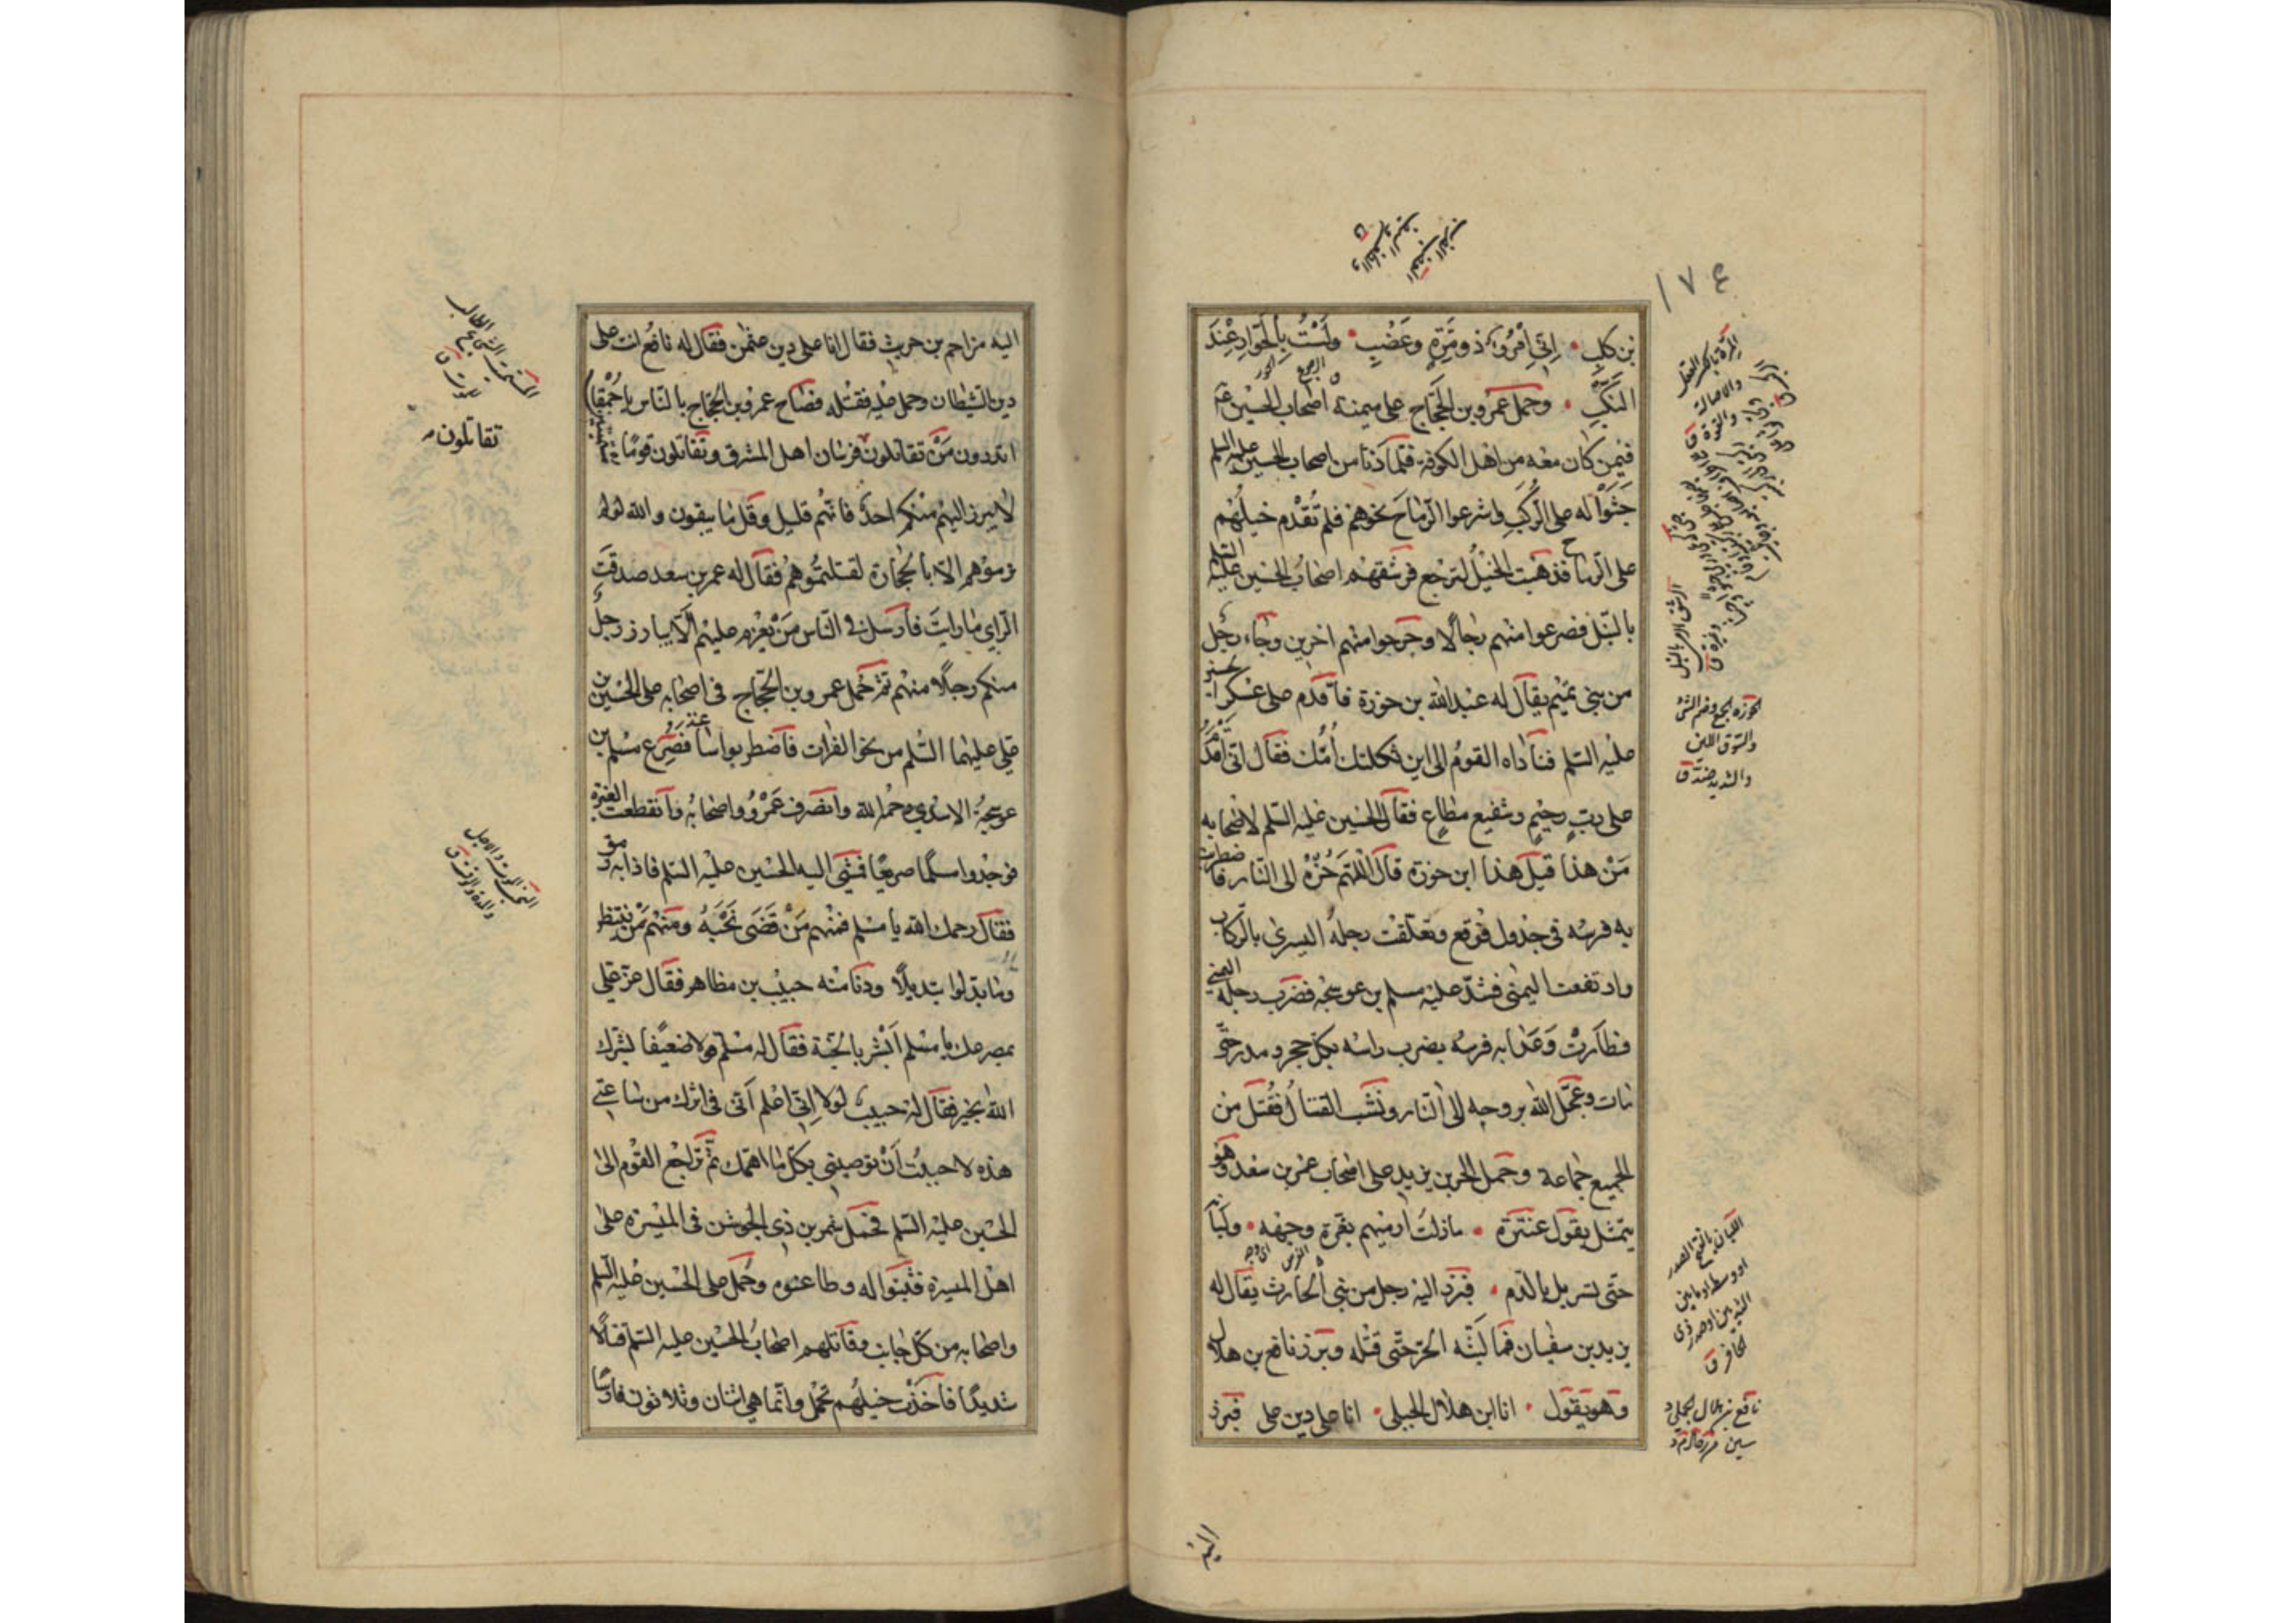 ١٧٤
بن كلب اني امرؤ ذو مرة وعضب ولست بالخوار عند
النكب وحمل عمرو بن الحجاج على ميمنة اصحاب الحسين ع
فيمن كان معه من اهل الكوفة فلما دنا من اصحاب الحسين عليه السلم
جثوا له على الركب واشرعوا الرماح نحوهم فلم تقدم خيلهم
على الرماح فذهبت الخيل لترجع فرشقهم اصحاب الحسين عليه السلم
بالنبل فصرعوا منهم رجالا وجرحوا منهم اخرين وجاء رجل
من بني تميم يقال له عبد الله بن حوزة فاقدم على عسكر الحسين
عليه السلم فناداه القوم الى اين ثكلتك امك فقال اني اقدم
على رب رحيم وشفيع مطاع فقال الحسين عليه السلم لاصحابه
من هذا قيل هذا ابن حوزة قال اللهم حزه الى النار فاضطربت
به فرسه في جدول فوقع وتعلقت رجله اليسرى بالركاب
وارتفعت اليمنى فشد عليه مسلم بن عوسجة فضرب رجله اليمنى
فطارت وعدا به فرسه يضرب راسه بكل حجر ومدر حتى
مات وعجل الله بروحه الى النار ونشب القتال فقتل من
الجميع جماعة وحمل الحر بن يزيد على اصحاب عمر بن سعد وهو
يتمثل بقول عنترة ما زلت ارميهم بغرة وجهه ولبانه
حتى تسربل بالدم فبرز اليه رجل من بني الحارث يقال له
يزيد بن سفيان فما لبثه الحر حتى قتله وبرز نافع بن هلال
وهو يقول انا ابن هلال البجلي انا على دين علي فبرز
المرة بالكسر العقل
والاصالة
والقوة ق
الرشق الرمي بالنبل
الحوزه الجمع وضم الشئ
والسوق اللين
والشديد ضد ق
اللبان بالفتح الصدر
او وسطه او ما بين
الثديين او صدر ذي
الحافر ق
نافع بن هلال البجلي
اليه
اليه مزاحم بن حريث فقال انا على دين عثمن فقال له نافع انت على
دين الشيطان وحمل عليه فقتله فصاح عمرو بن الحجاج بالناس يا حمقا
اتدرون من تقاتلون فرسان اهل المشرق وتقاتلون قوما مستميتين
لا يبرز اليهم منكم احد فانهم قليل وقل ما يبقون والله لو لم
ترموهم الا بالحجارة لقتلتموهم فقال له عمر بن سعد صدقت
الراي ما رايت فارسل في الناس من يعزم عليهم الا يبارز رجل
منكم رجلا منهم ثم حمل عمرو بن الحجاج في اصحابه على الحسين بن
علي عليهما السلم من نحو الفرات فاضطربوا ساعة فصرع مسلم بن
عوسجة الاسدي رحمه الله وانصرف عمرو واصحابه وانقطعت الغبرة
فوجدوا مسلما صريعا فمشى اليه الحسين عليه السلم فاذا به رمق
فقال رحمك الله يا مسلم فمنهم من قضى نحبه ومنهم من ينتظر
وما بدلوا تبديلا ودنا منه حبيب بن مظاهر فقال عز علي
بمصرعك يا مسلم ابشر بالجنة فقال له مسلم قولا ضعيفا بشرك
الله بخير فقال له حبيب لولا اني اعلم اني في اثرك من ساعتي
هذه لاحببت ان توصيني بكل ما اهمك ثم تراجع القوم الى
الحسين عليه السلم فحمل شمر بن ذي الجوشن في الميسرة على
اهل الميسرة فثبتوا له وطاعنوه وحمل على الحسين عليه السلم
واصحابه من كل جانب وقاتلهم اصحاب الحسين عليه السلم قتالا
شديدا فاخذت خيلهم تحمل وانما هي اثنان وثلاثون فارسا
تقاتلون